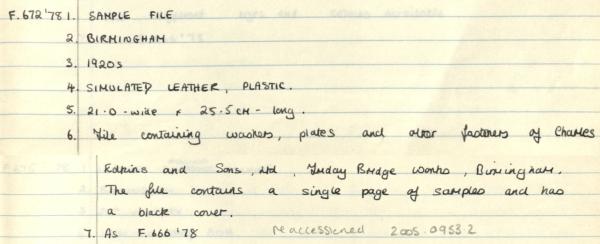 F.672'78 1. SAMPLE FILE
2. BIRMINGHAM
3. 1920s
4. SIMULATED LEATHER, PLASTIC.
5. 21.0-wide x 25.5cm - long.
6. File containing washers, plates and other fasteners of Charles
Edkins and Sons, Ltd, Friday Bridge works, Birmingham.
The file contains a single page of samples and has
a black cover.
7. As F.666'78 reaccessioned 2005.0953.2